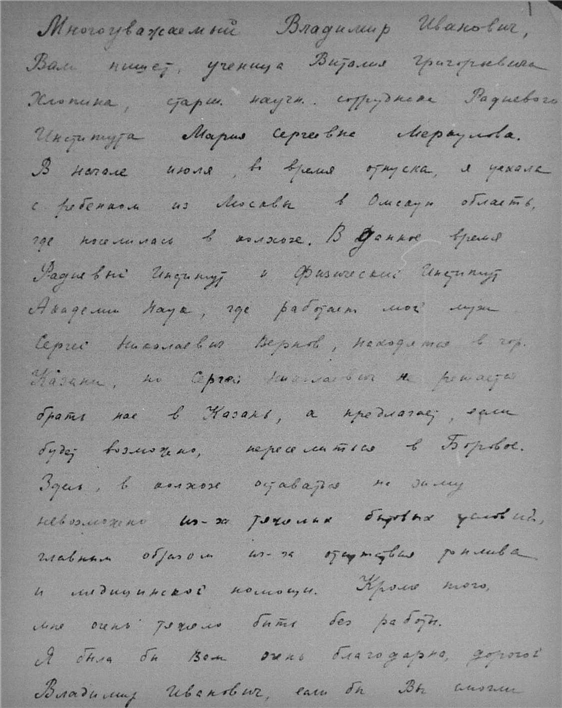 1
Многоуважаемый Владимир Иванович,
Вам пишет, ученица Виталия Григорьевича
Хлопина, старш. научн. сотрудник Радиевого
Института Мария Сергеевна Меркулова.
В начале июля, во время отпуска, я уехала
с ребенком из Москвы в Омскую область,
где поселилась в колхозе. В данное время
Радиевый Институт и Физический Институт
Академии Наук, где работает мой муж
Сергей Николаевич Вернов, находятся в гор.
Казани, но Сергей Николаевич не решается
брать нас в Казань, а предлагает, если
будет возможно, переселиться в Боровое.
Здесь, в колхозе оставаться на зиму
невозможно из-за тяжелых бытовых условий,
главным образом из-за отсутствия топлива
и медицинской помощи. Кроме того,
мне очень тяжело быть без работы.
Я была бы Вам очень благодарна, дорогой
Владимир Иванович, если бы Вы смогли